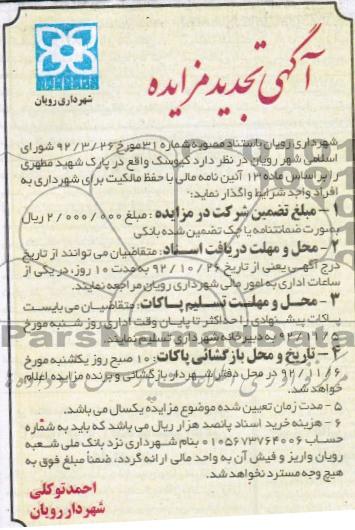 آگهی تجدید مزایده
شهرداری رویان
شهرداری رویان باستناد مصوبه شماره ۳۱ مورخ ۹۲/۳/۲۶ شورای
اسلامی شهر رویان در نظر دارد کیوسک واقع در پارک شهید مطهری
را براساس ماده ۱۳ آئین نامه مالی با حفظ مالکیت برای شهرداری به
افراد واجد شرایط واگذار نماید:
۱- مبلغ تضمین شرکت در مزایده: مبلغ ۲/۰۰۰/۰۰۰ ریال
بصورت ضمانتنامه یا چک تضمین شده بانکی
۲- محل و مهلت دریافت اسناد: متقاضیان می توانند از تاریخ
درج آگهی یعنی از تاریخ ۹۲/۱۰/۲۶ به مدت ۱۰ روز، در یکی از
ساعات اداری به امور مالی شهرداری رویان مراجعه نمایند.
۳- محل و مهلت تسلیم پاکات: متقاضیان می بایست
پاکات پیشنهادی را حداکثر تا پایان وقت اداری روز شنبه مورخ
۹۲/۱۱/۵ به دبیرخانه شهرداری تسلیم نمایند.
۴- تاریخ و محل بازگشائی پاکات: ۱۰ صبح روز یکشنبه مورخ
۹۲/۱۱/۶ در محل دفتر شهردار بازگشائی و برنده مزایده اعلام
خواهد شد.
۵- مدت زمان تعیین شده موضوع مزایده یکسال می باشد.
۶- هزینه خرید اسناد پانصد هزار ریال می باشد که باید به شماره
حساب ۰۱۰۵۶۷۳۷۶۴۰۰۶ بنام شهرداری نزد بانک ملی شعبه
رویان واریز و فیش آن به واحد مالی ارائه گردد، ضمناً مبلغ فوق به
هیچ وجه مسترد نخواهد شد.
احمد توکلی
شهردار رویان